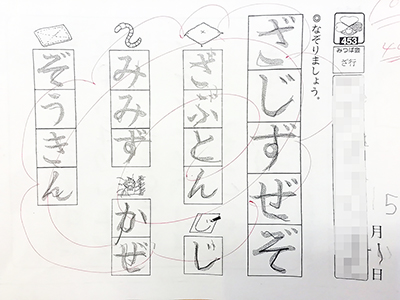 453
みつば会
ざ行
5月
日
◎なぞりましょう。
ざじずぜぞ
ざぶとん
じ
みみず
かぜ
ぞうきん